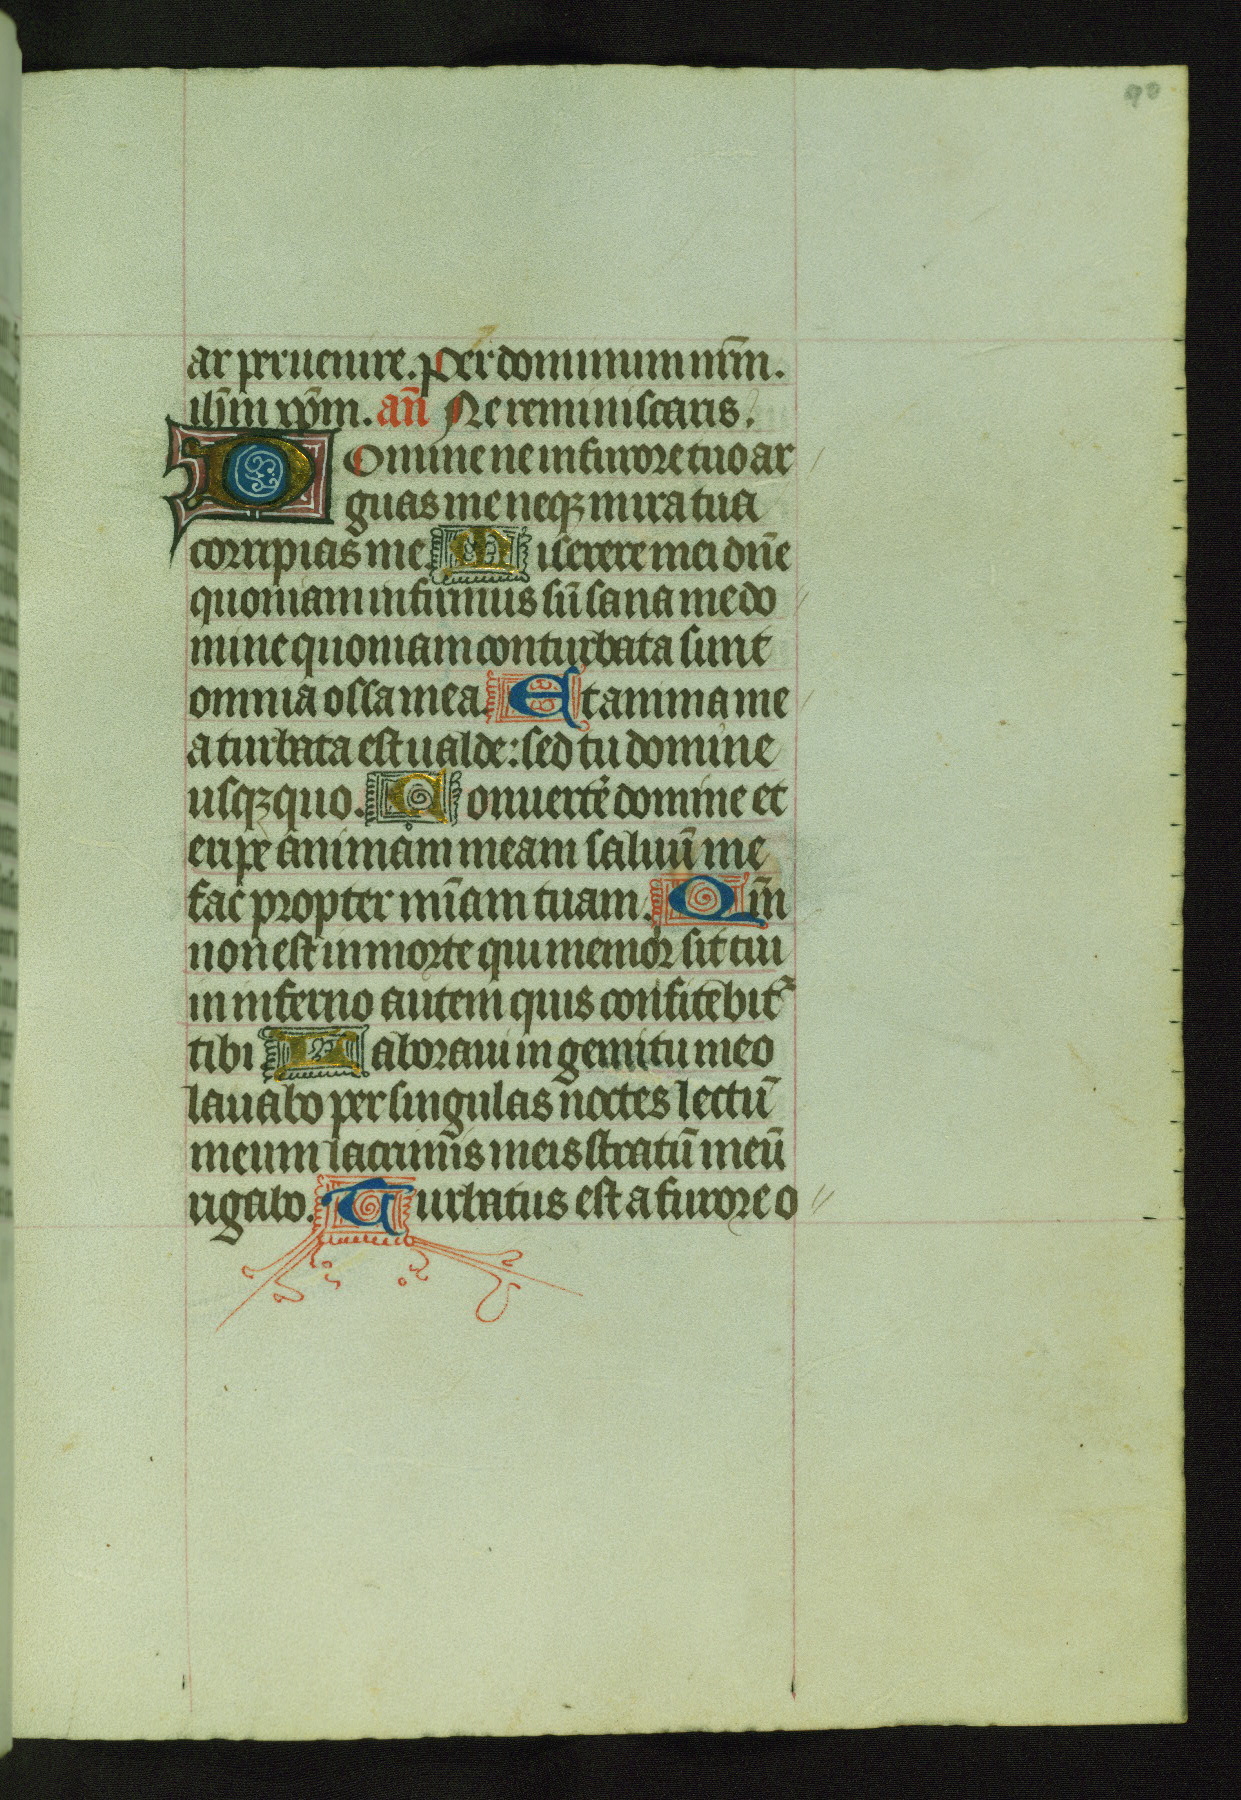 90
ar peruenire. Per dominum nr̄m.
ih̄m xp̄m. an̄ Ne reminiscaris.
Domine ne in furore tuo ar
guas me neqꝫ in ira tua
corripias me Miserere mei dn̄e
quoniam infirmus sū sana me do
mine quoniam conturbata sunt
omnia ossa mea. Et anima me
a turbata est ualde: sed tu domine
usqꝫ quo. Conuertere domine et
eripe animam meam saluū me
fac propter mīam tuam. Qm̄
non est in morte qui memor sit tui
in inferno autem quis confitebit᷑
tibi Laboraui in gemitu meo
lauabo per singulas noctes lectū
meum lacrimis meis stratū meū
rigabo. Turbatus est a furore o